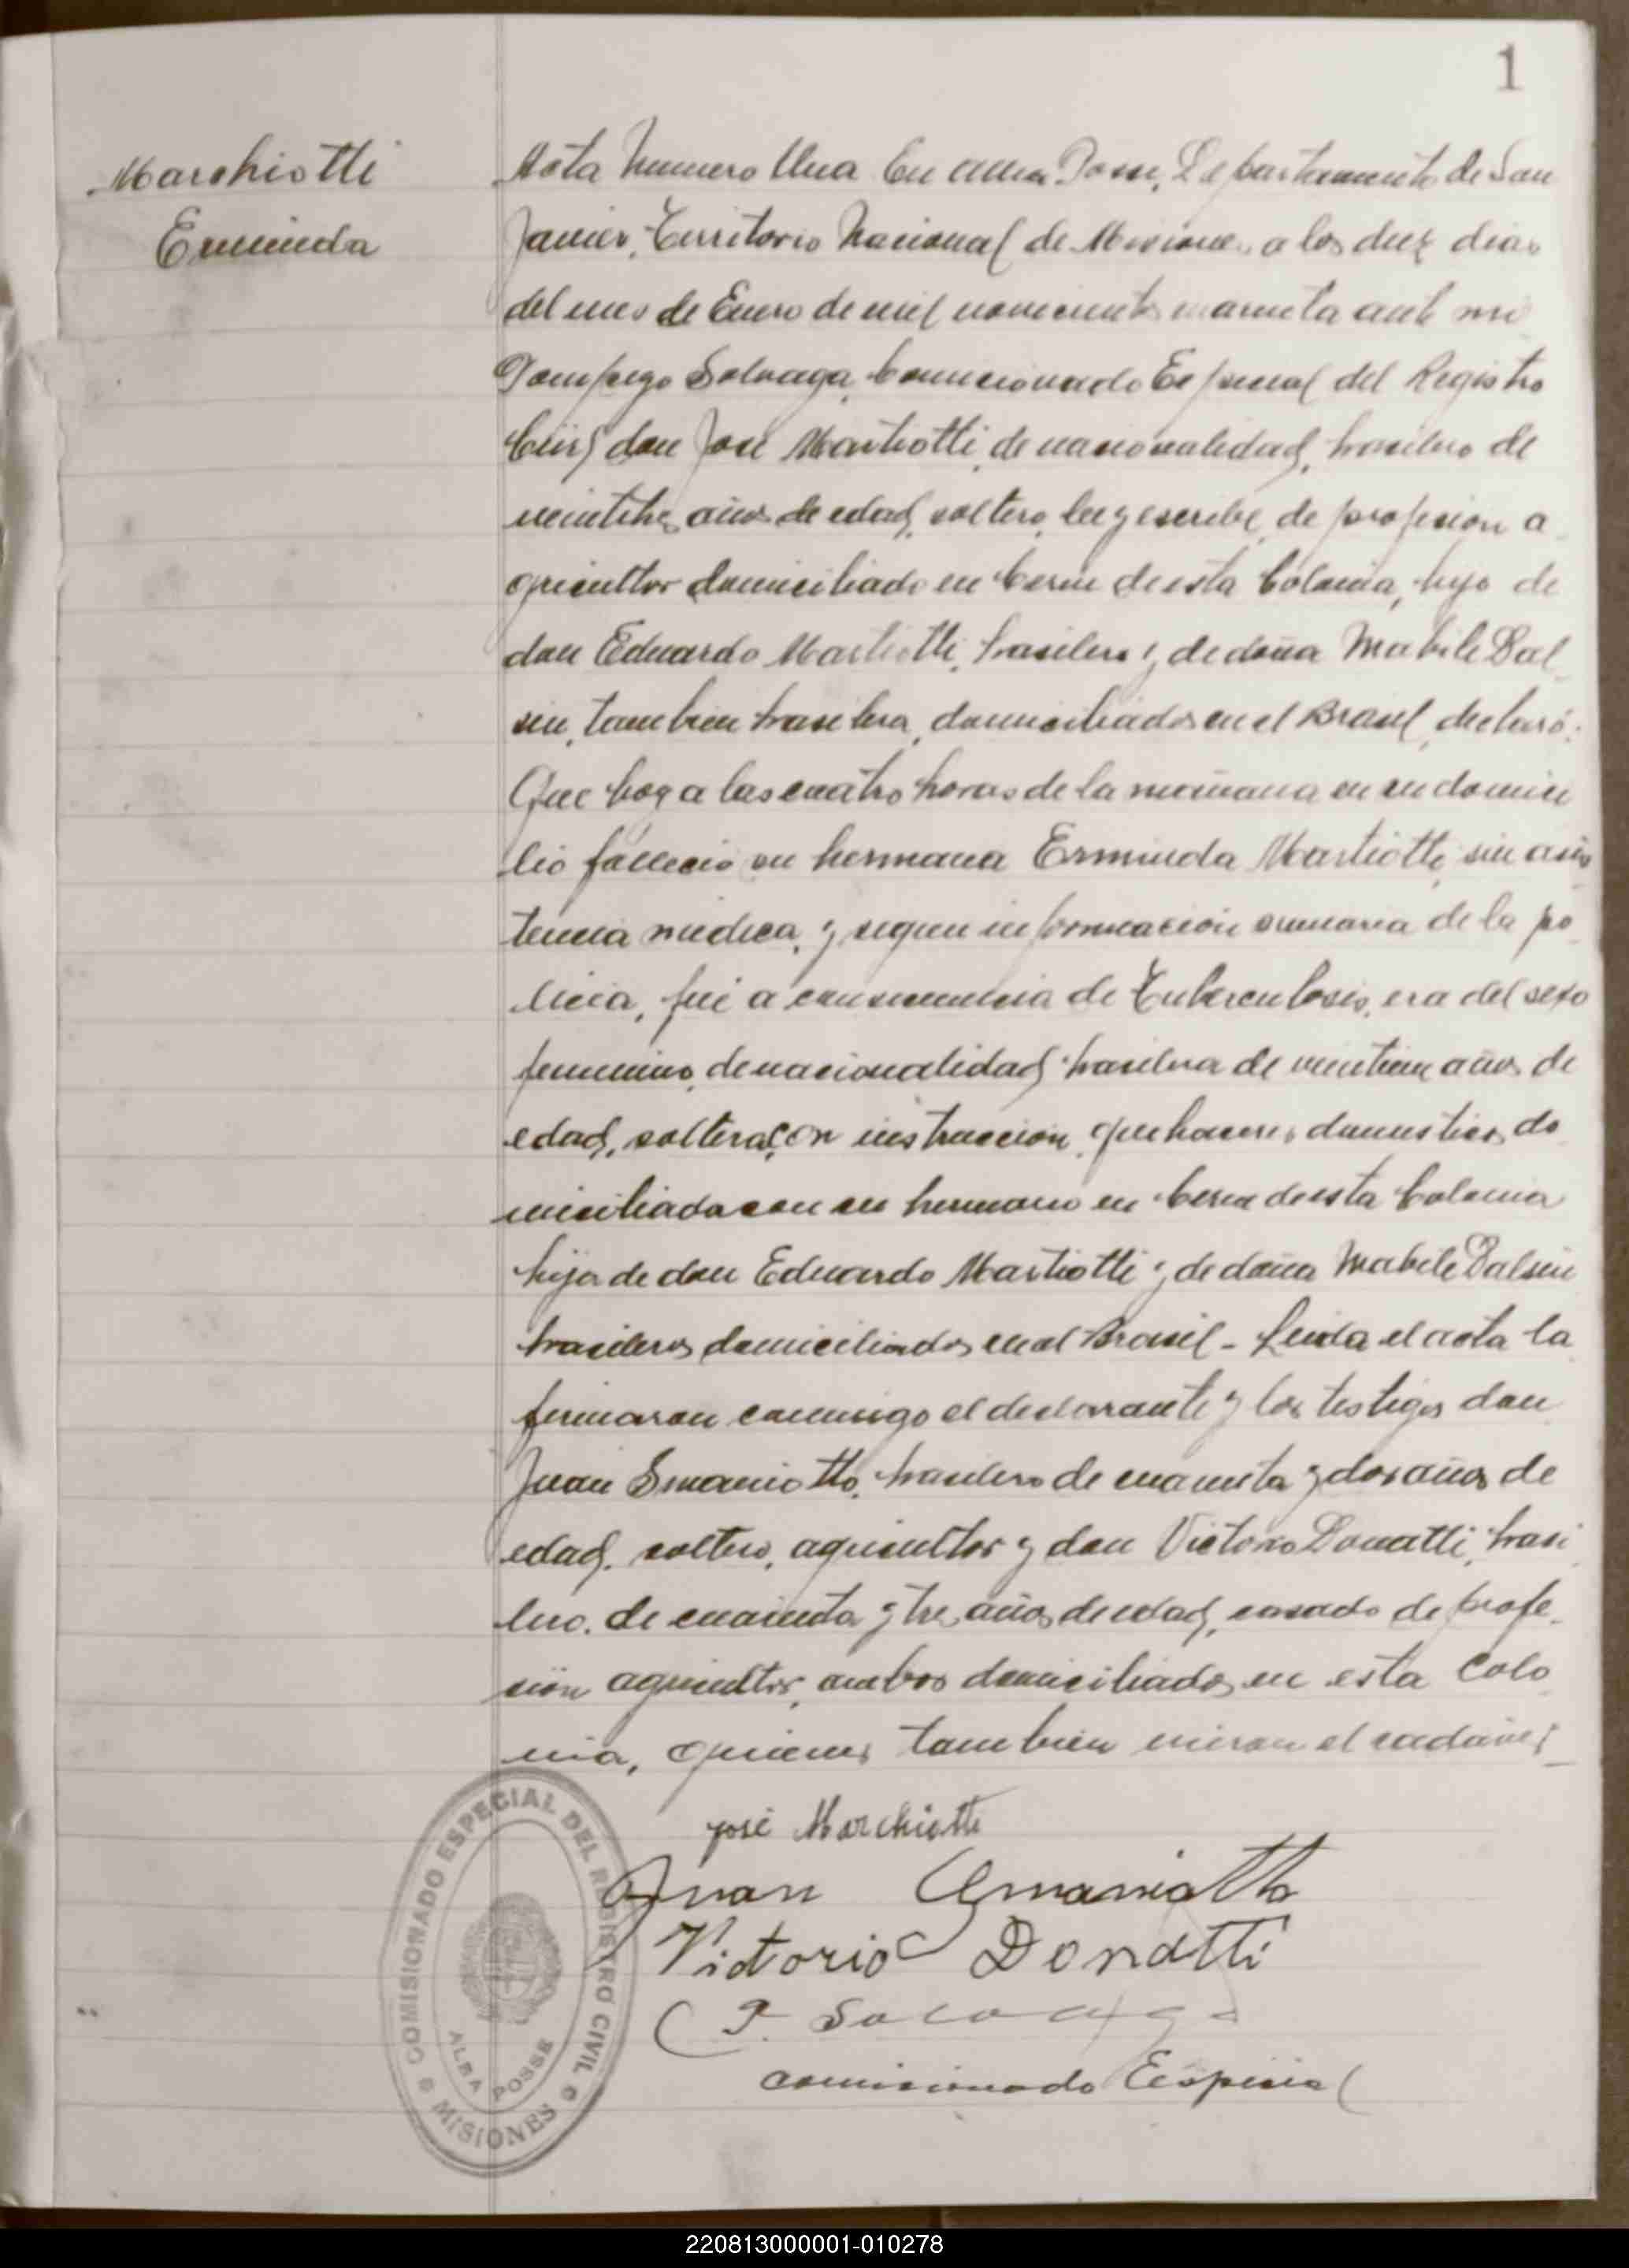 1
Marchiotti
Erminda
Acta Numero Una En Alba Posse, Departamento de San
Javier, Territorio Nacional de Misiones a los diez dias
del mes de Enero de mil novecientos cuarenta ante mi
Salvaga, Comicionado Especial del Registro
Civil don José Martiotti, de nacionalidad, brasilero de
veintitres años de edad, soltero, lee y escribe, de profesion a
gricultor domiciliado en Cerca de esta Colonia, hijo de
don Eduardo Martiotti, brasilero y de doña Mabile Dal
sin, tambien brasilera, domiciliados en el Brasil, declaró:
Que hoy a las cuatro horas de la mañana en su domici
lio fallecio su hermana Erminda Martiotti, sin asis
tencia medica, y segun informacion sumaria de la po
licia, fué a consecuencia de Tuberculosis, era del sexo
femenino, de nacionalidad brasilera de años de
edad, soltera, con instruccion, quehaceres domesticos, do
miciliada con su hermano en Cerca de esta Colonia
hija de don Eduardo Martiotti y de doña Mabile Dalsin
brasileros domiciliados en el Brasil - Leida el acta la
firmaron conmigo el declarante y los testigos don
Juan Smaniotto, brasilero de cuarenta y dos años de
edad, soltero, agricultor y don Victorio Donatti, brasi
lero, de cuarenta y tres años de edad, casado de profe-
sión agricultor, ambos domiciliados en esta Colo
nia, quienes tambien vieron el cadáver
José Marchiotti
Juan Smaniotto
Victorio Donatti
P. Salvaga
comisionado Especial
COMISIONADO ESPECIAL DEL REGISTRO CIVIL
ALBA POSSE
MISIONES
220813000001-010278